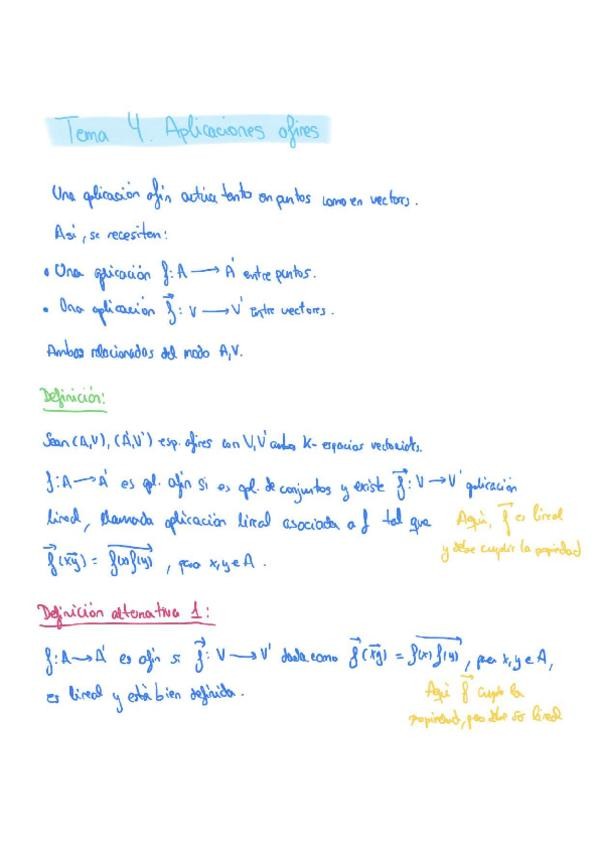 Tema 4. Aplicaciones afines
Una aplicación afín actúa tanto en puntos como en vectores.
Así, se necesitan:
• Una aplicación f: A → A' entre puntos.
• Una aplicación f⃗: V → V' entre vectores.
Ambas relacionadas del modo A,V.
Definición:
Sean (A,V), (A',V') esp. afines con V,V' ambos K-espacios vectoriales.
f: A → A' es apl. afín si es apl. de conjuntos y existe f⃗: V → V' aplicación
lineal, llamada aplicación lineal asociada a f tal que
Aquí, f⃗ es lineal
y debe cumplir la propiedad
f⃗(xy⃗) = f(x)f(y)⃗, para x,y ∈ A.
Definición alternativa 1:
f: A → A' es afín si f⃗: V → V' dada como f⃗(xy⃗) = f(x)f(y)⃗, para x,y ∈ A,
es lineal y está bien definida.
Aquí f⃗ cumple la
propiedad, pero debe ser lineal